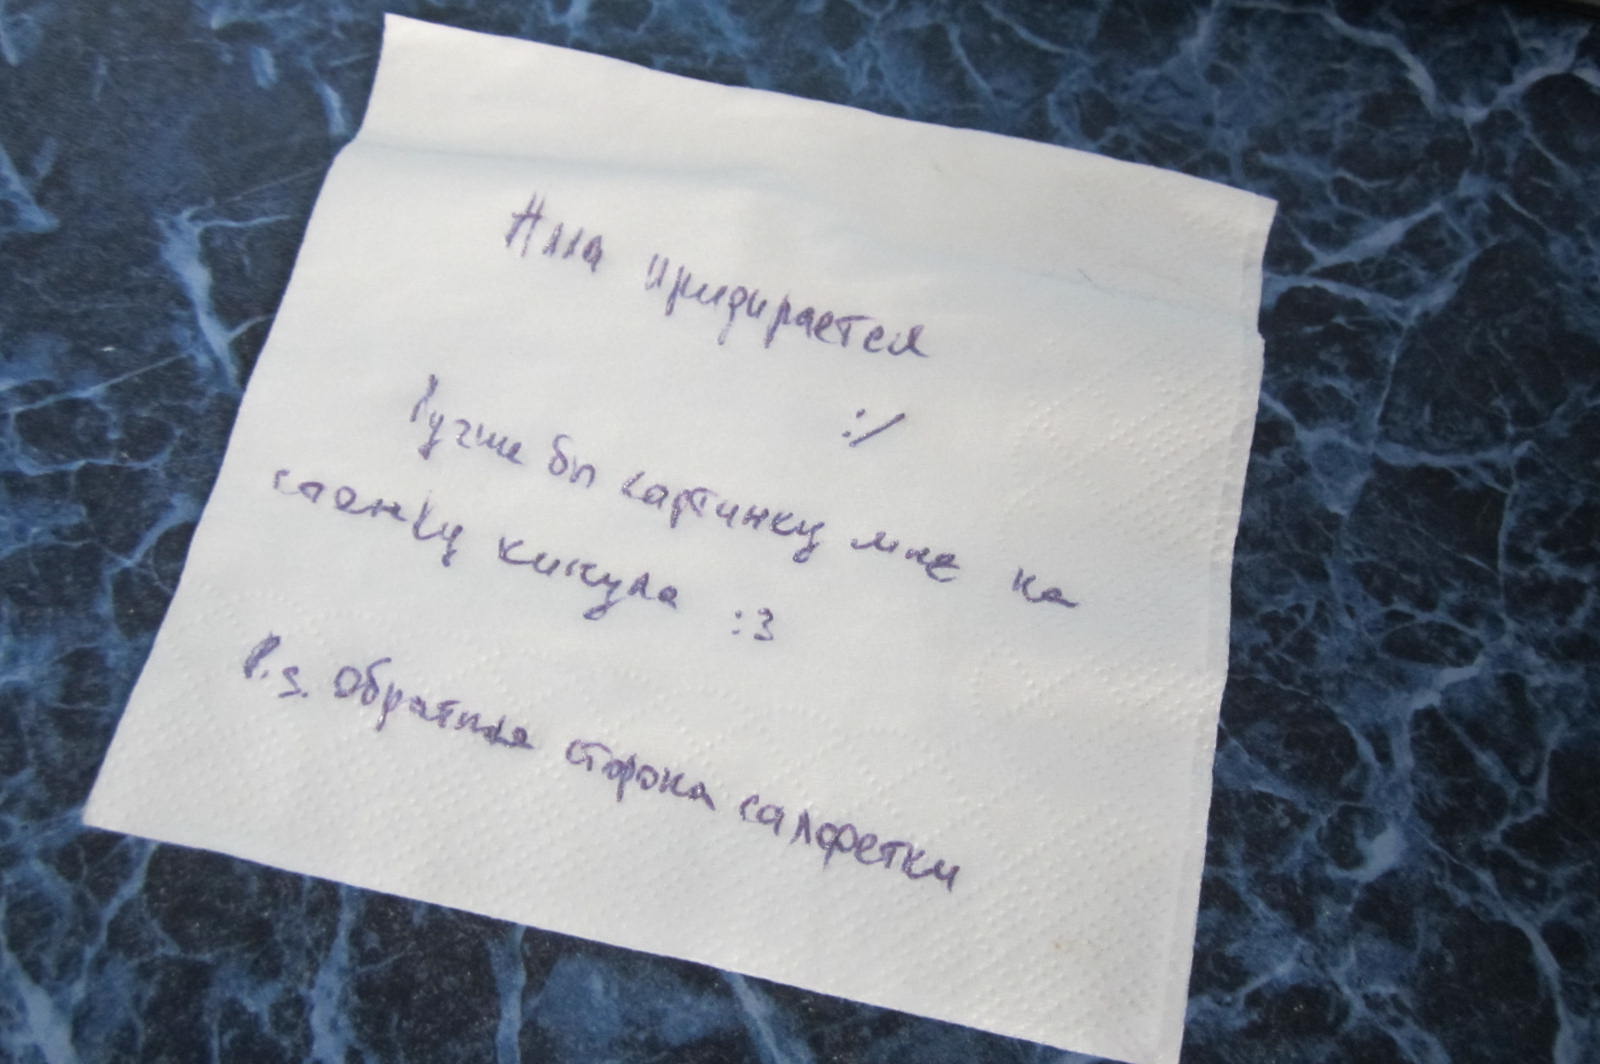 Алла придирается
:/
Лучше бы картинку мне на
стенку кинула :3
P.s. Обратная сторона салфетки